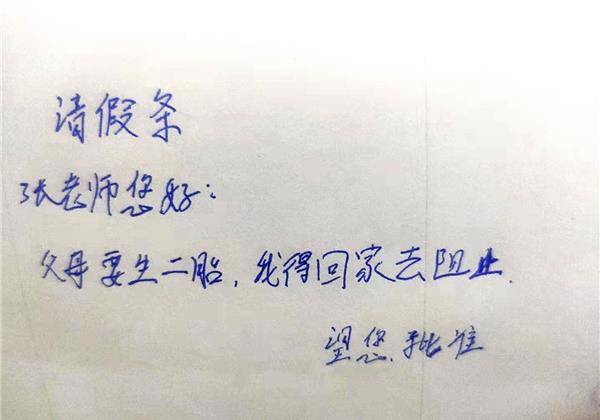 请假条
张老师您好：
父母要生二胎，我得回家去阻止.
望您批准